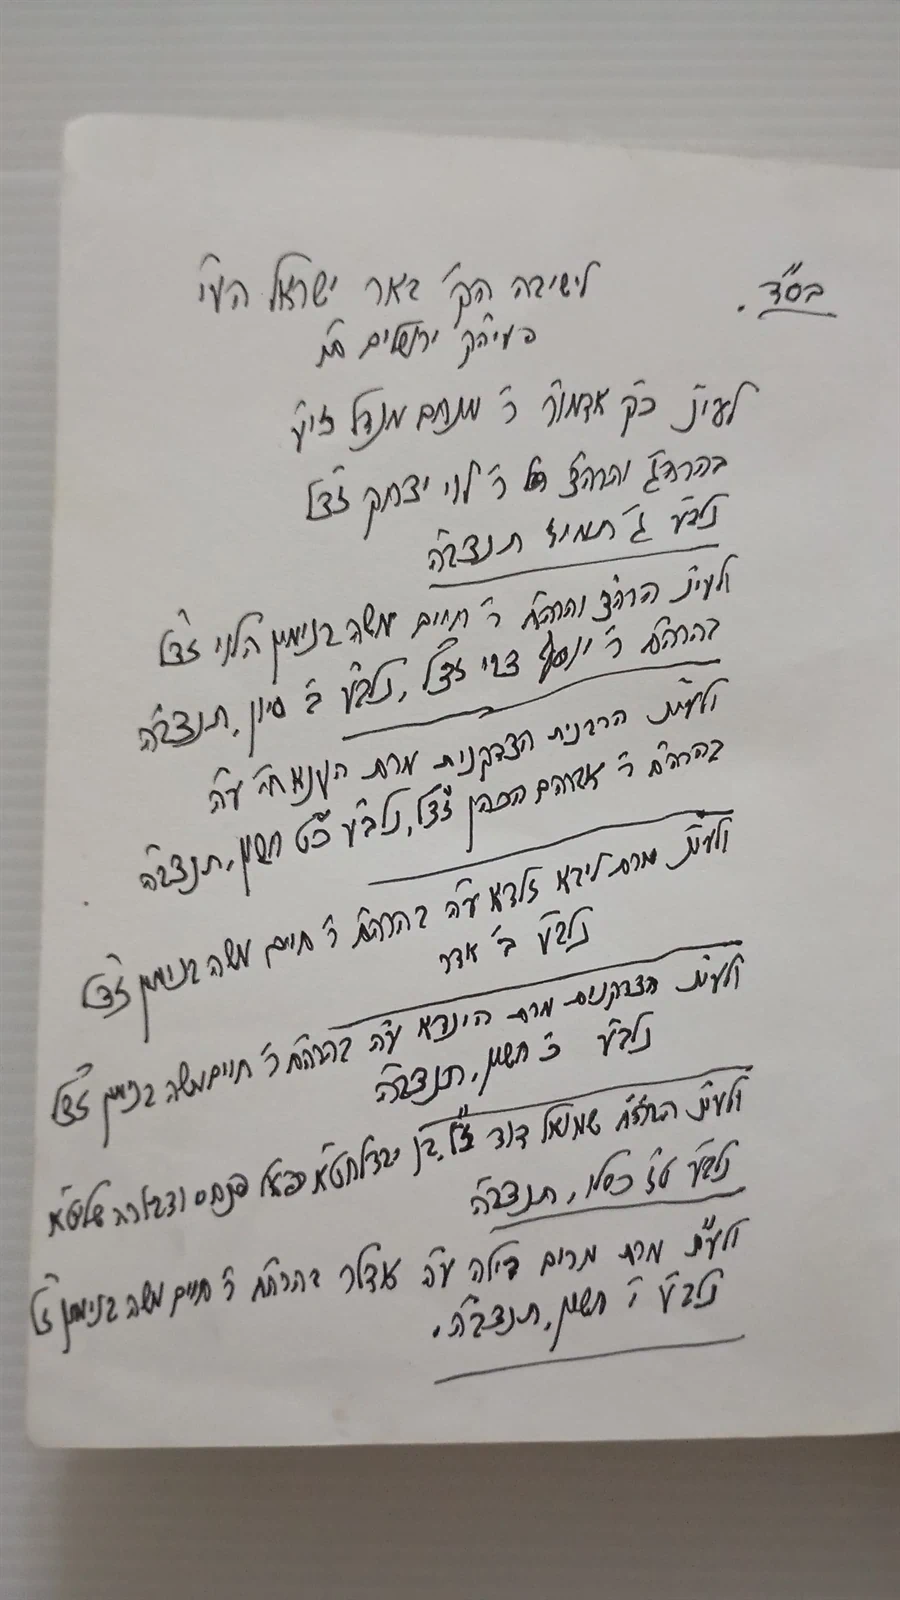 בס"ד.
לישיבה הק' באר ישראל העי'
פעיה"ק ירושלים ת"ו
לעי"נ כ"ק אדמו"ר ר' מנחם מנדל זי"ע
בהרה"ג והרה"צ ר' לוי יצחק זצ"ל
נלב"ע ג' תמוז תנצב"ה
ולעי"נ הרה"צ והרה"ח ר' חיים משה בנימין הלוי זצ"ל
בהרה"ח ר' יוסף צבי זצ"ל, נלב"ע ב' סיון, תנצב"ה
ולעי"נ הרבנית הצדקנית מרת ע"ה
בהרה"ח ר' אברהם הכהן זצ"ל, נלב"ע כ"ט חשון, תנצב"ה
ולעי"נ מרת ליבא זלדא ע"ה בהרה"ח ר' חיים משה בנימין זצ"ל
נלב"ע ב' אדר
ולעי"נ הצדקנית מרת הינדא ע"ה בהרה"ח ר' חיים משה בנימין זצ"ל
נלב"ע כ' חשון, תנצב"ה
ולעי"נ שמואל דוד ז"ל, בן יבדלחט"א פנחס ודבורה שליט"א
נלב"ע ט"ז כסלו, תנצב"ה
ולעי"נ מרת מרים ביילה ע"ה אדלר בהרה"ח ר' חיים משה בנימין ז"ל
נלב"ע י' חשון, תנצב"ה.